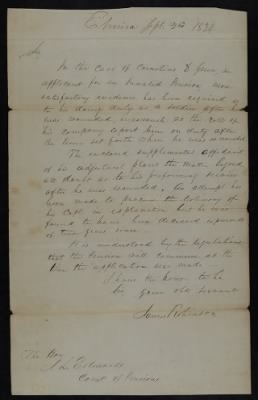 Elmira Sept. 1838
Sir,
In the case of Cornelius D. an
applicant for an Invalid Pension more
satisfactory evidence has been required as
to his doing duty as a soldier after he
was wounded, inasmuch as the roll of
his company report him on duty after
the time set forth when he was wounded.
The enclosed supplemental affidavit
of his adjutant places the matter beyond
a doubt as to his performing service
after he was wounded. An attempt has
been made to procure the testimony of
his Capt. in explanation but he is
found to have been deceased upwards
of two years since.
It is understood by the regulations
that the Pension will commence at the
time the application was made
I have the honor to be
Sir your obt servant
James Robinson
The Hon
J. L. Edwards
Comr of Pensions